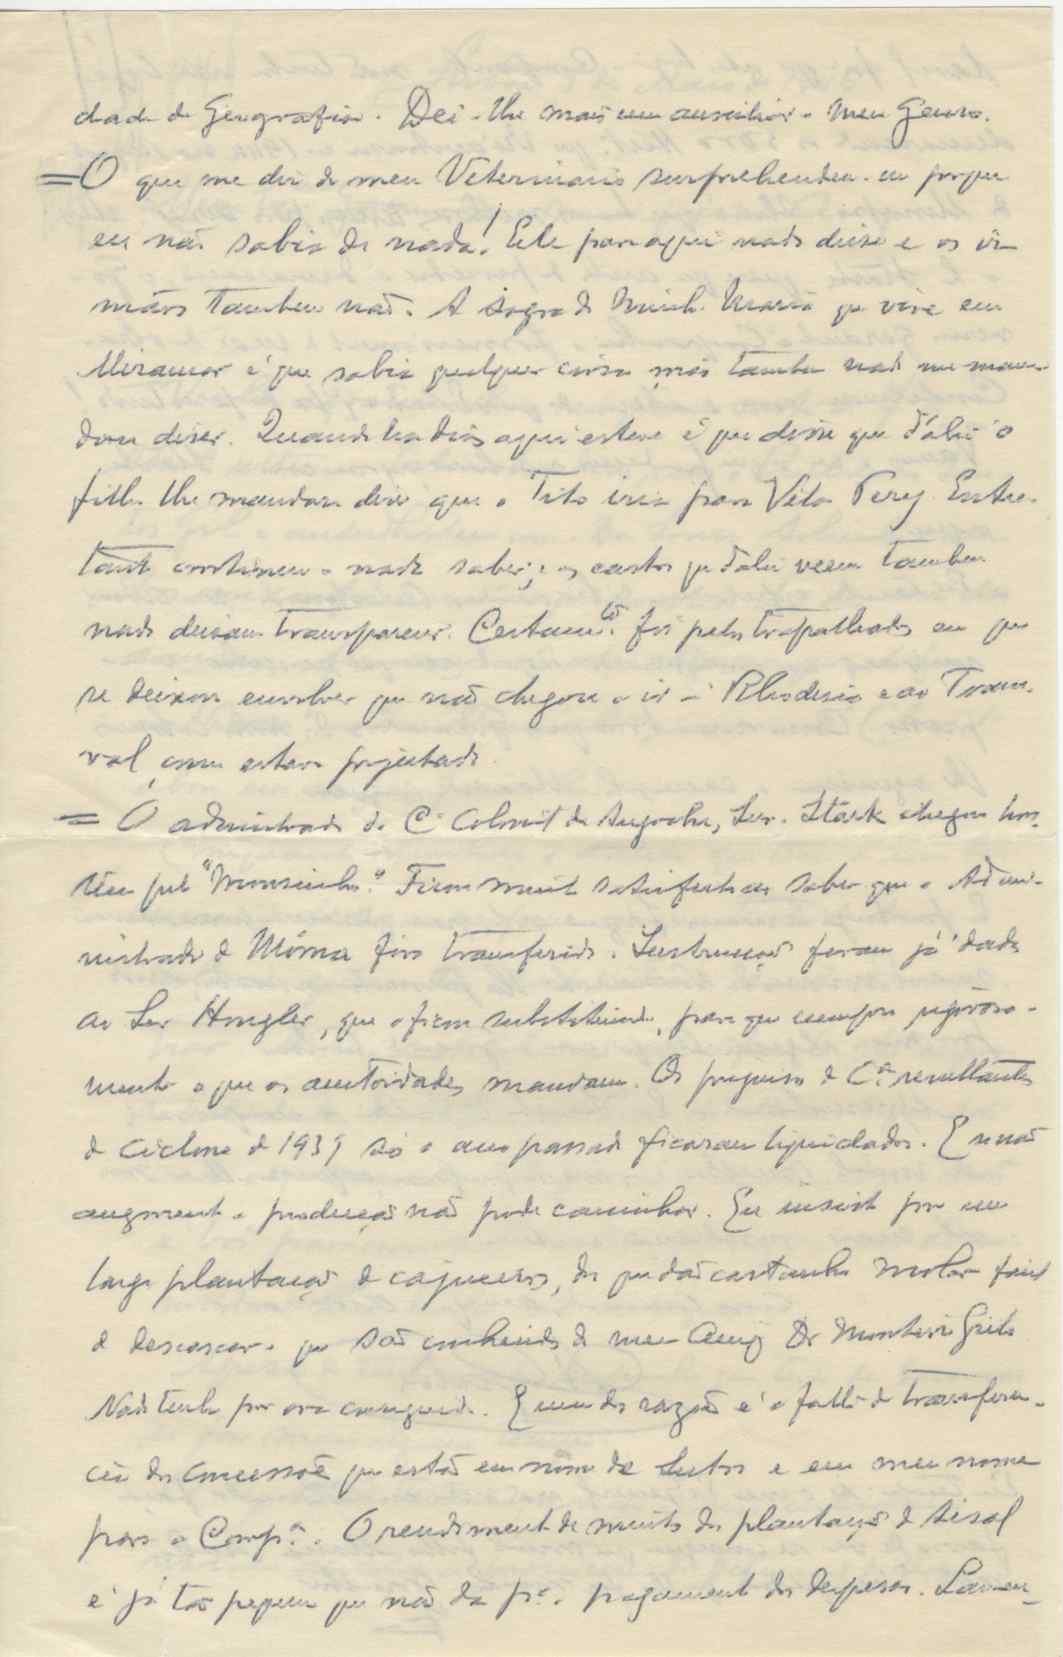 dade de Geografia. Dei-lhe mais um auxiliar o meu Genro.
= O que me diz do meu Veterinario surprehendeu-me porque
eu não sabia de nada! Ele para aqui nada disse e os ir-
mãos tambem não. A sogra de minha Maria que vive em
Miramar é que sabia qualquer coisa mas tambem nada me man-
dou dizer. Quando ha dias aqui esteve é que disse que d'ali o
filho lhe mandara dizer que o Tito iria para Vila Pery. Entre-
tanto continuo a nada saber; e as cartas que d'ali veem tambem
nada deixam transparecer. Certamte. foi pelas trapalhadas em que
se deixou envolver que não chegou a ir á Rhodesia e ao Trans-
val, como estava projectado.
= O administrador da Ca. Colonial de Angoche, Snr. Stark chegou hon-
tem pelo "Mousinho". Ficou muito satisfeito ao saber que o Admi-
nistrador de Môma fôra transferido. Instrucções foram já dadas
ao Snr Hougler, que o ficou substituindo, para que cumpra rigorosa-
mente o que as auctoridades mandam. Os prejuisos da Ca. resultantes
do ciclone de 1939 só o ano passado ficaram liquidados. E se não
augmenta a producção não pode caminhar. Eu insisto por uma
larga plantação de cajueiros, dos que dão castanha molar facil
de descascar e que são conhecidos do meu amigo Dr Monteiro Grilo
Nada tenho por ora conseguido. E uma das razões é a falta de transferen-
cia das concessões que estão em nome de outros e em meu nome
para a Compa. O rendimento de muitas das plantações de sisal
é já tão pequeno que não da pa. o pagamento das despesas. Lamen-